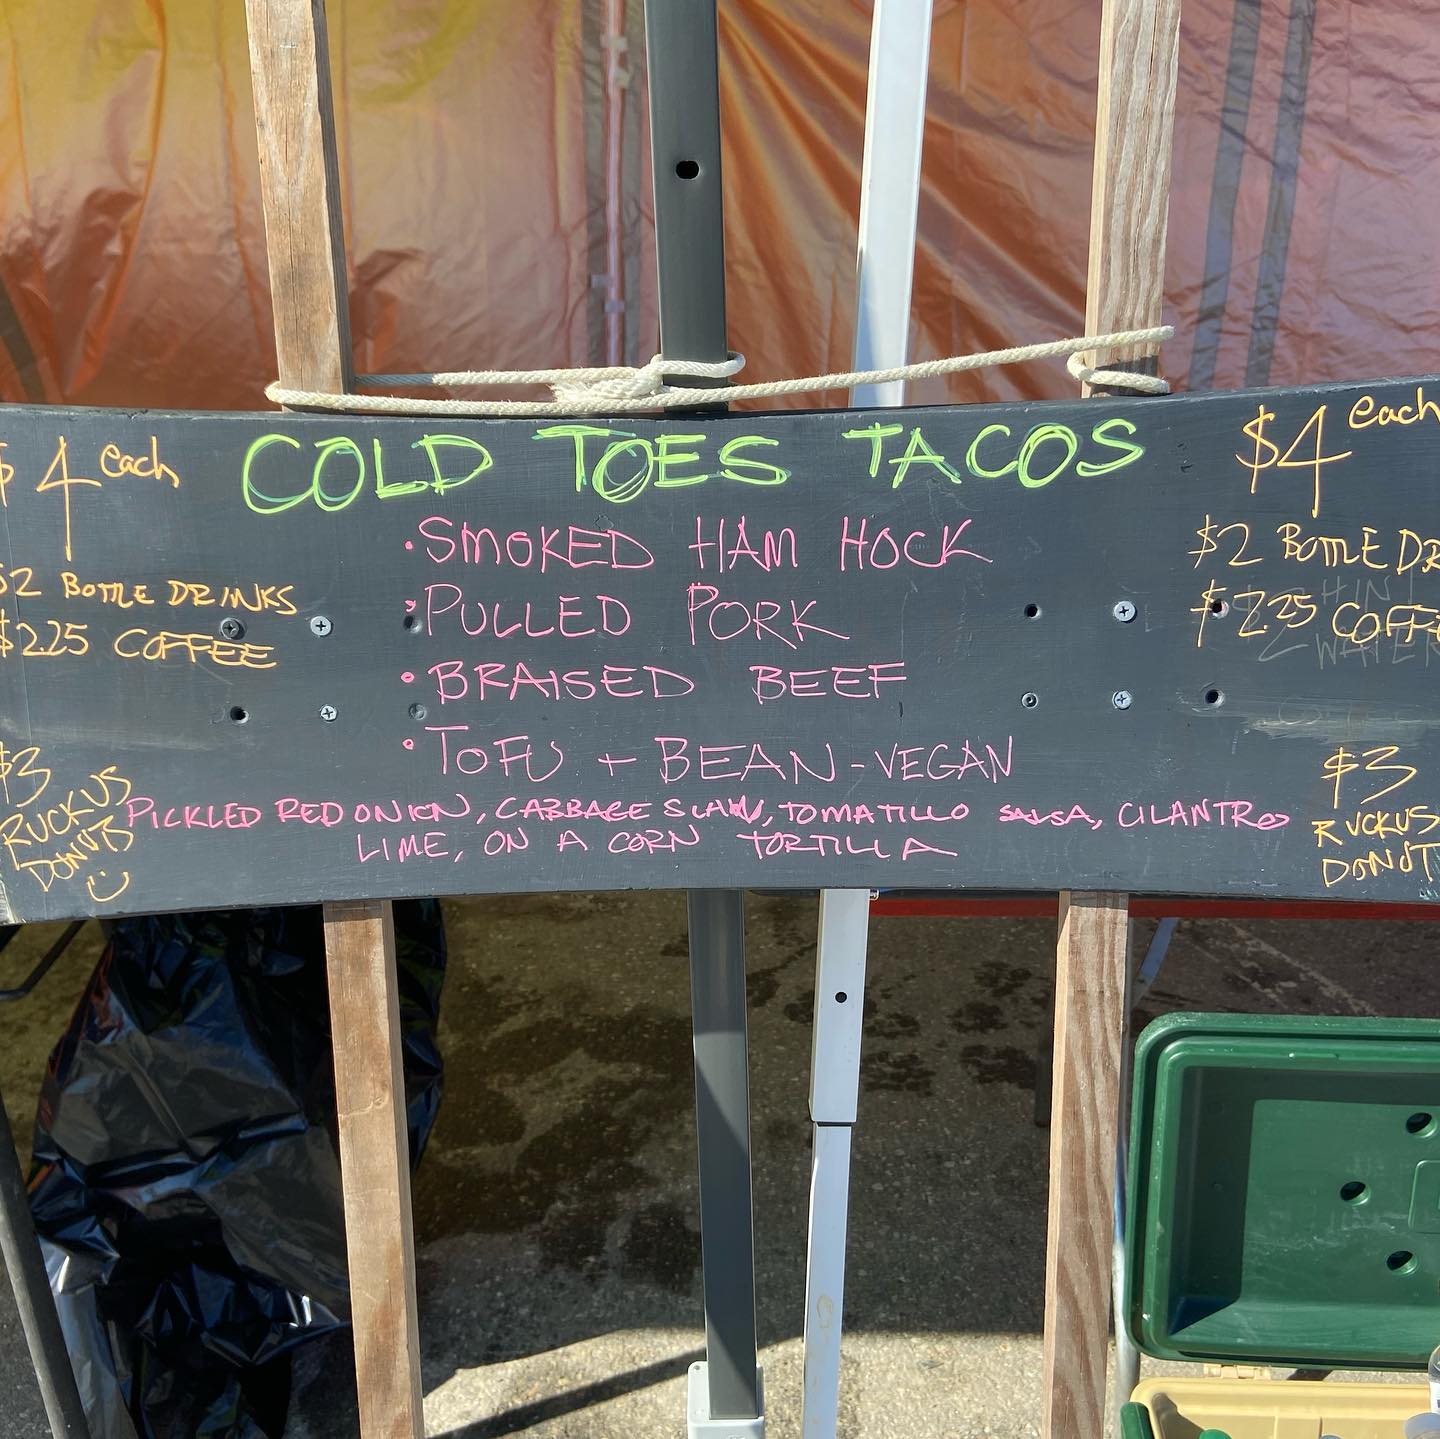 $4 each
COLD TOES TACOS
$4 each
• SMOKED HAM HOCK
• PULLED PORK
• BRAISED BEEF
• TOFU + BEAN - VEGAN
PICKLED RED ONION, CABBAGE SLAW, TOMATILLO SALSA, CILANTRO
LIME, ON A CORN TORTILLA
$2 BOTTLE DRINKS
$2.25 COFFEE
$3
RUCKUS
DONUTS
$2 BOTTLE DR
$2.25 COFFE
$3
RUCKUS
DONUT